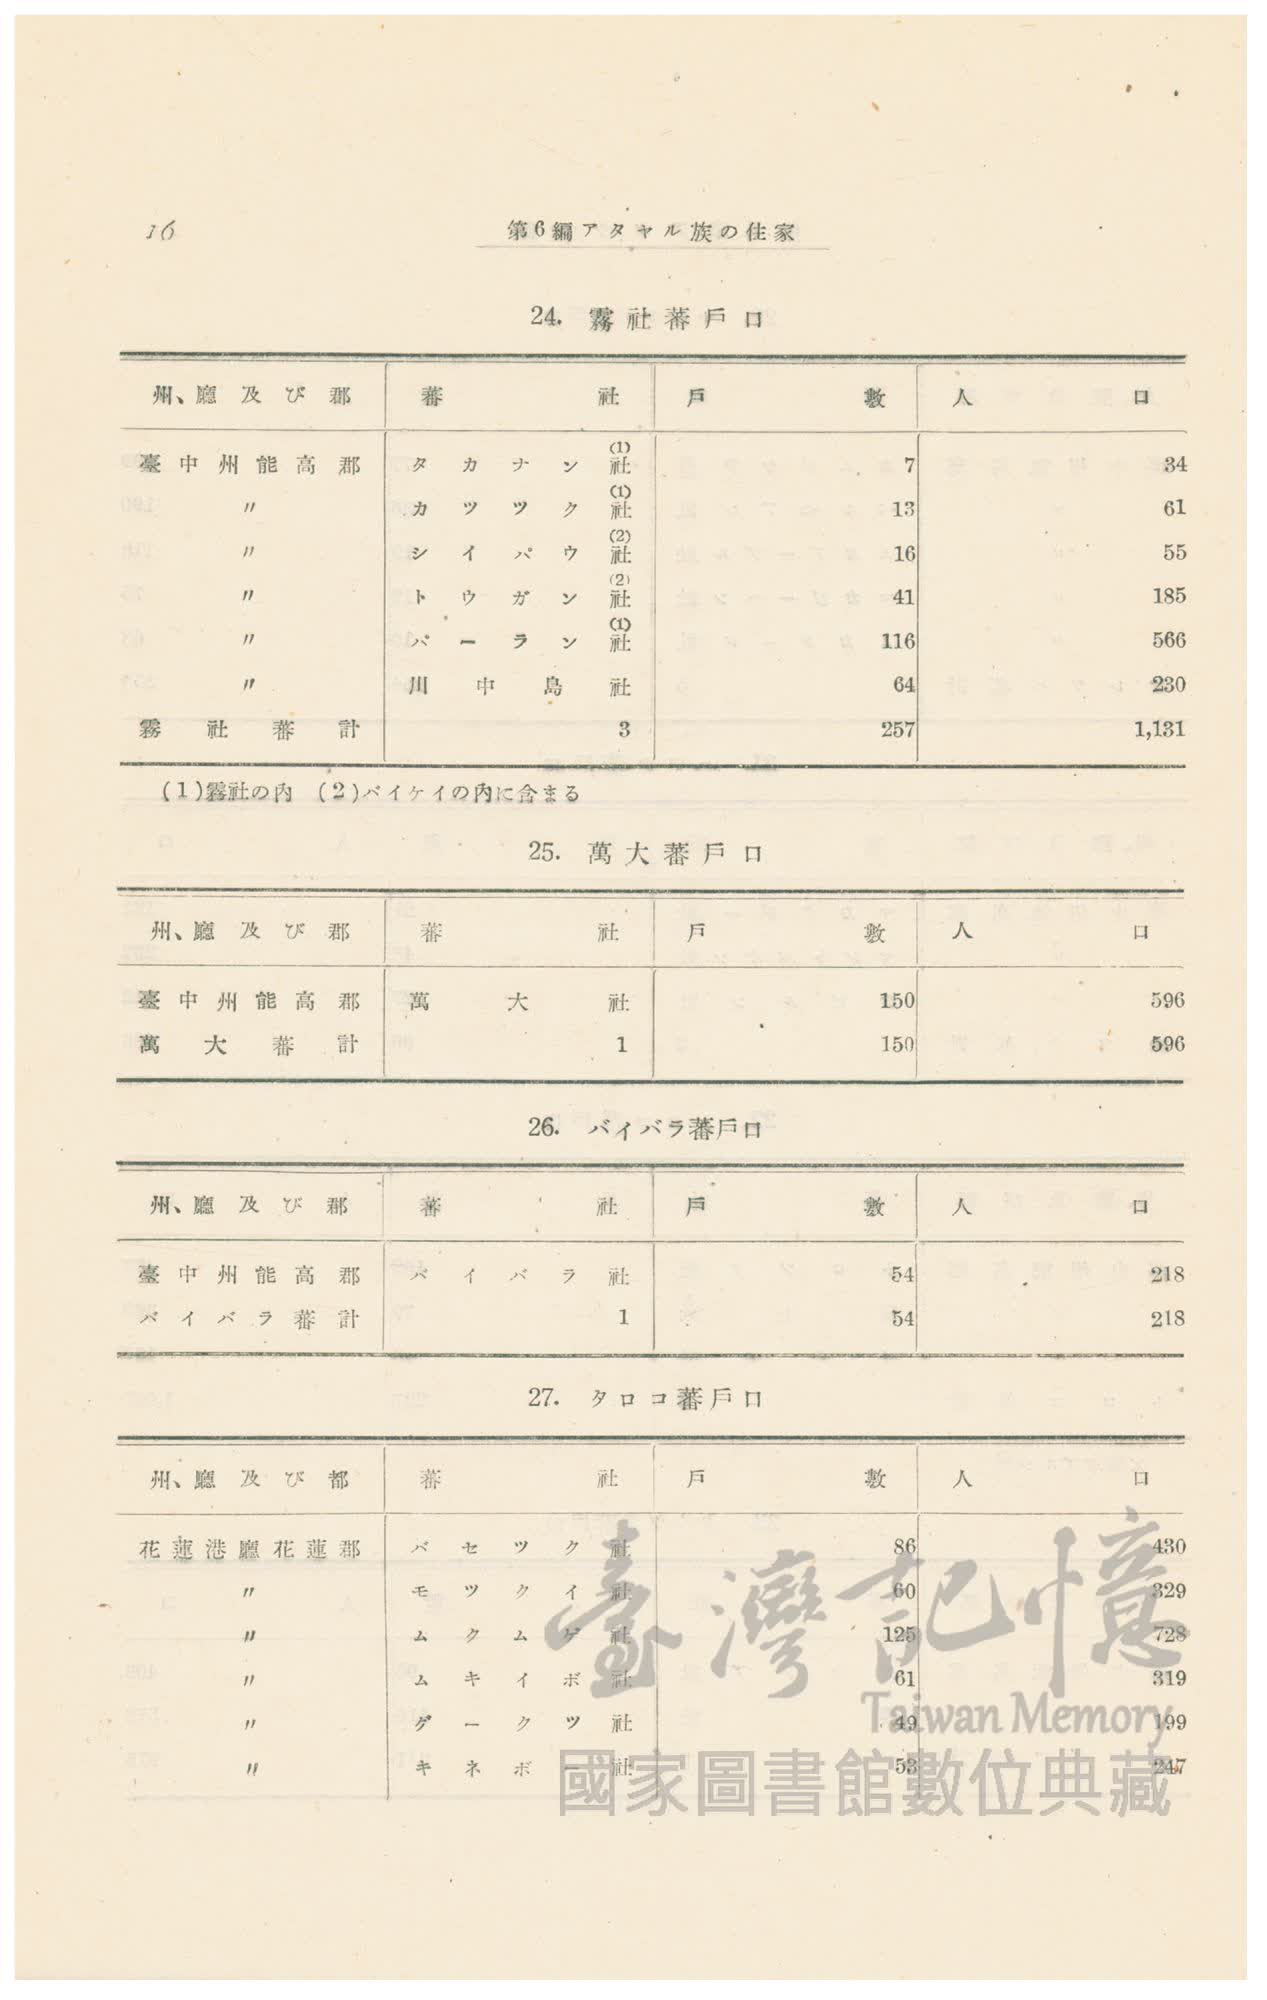 16
第6編アタヤル族の住家
24. 霧社蕃戶口
州、廳及び郡 蕃社 戶數 人口
臺中州能高郡 タカナン社(1) 7 34
〃 カツツク社(1) 13 61
〃 シイパウ社(2) 16 55
〃 トウガン社(2) 41 185
〃 パーラン社(1) 116 566
〃 川中島社 64 230
霧社蕃計 3 257 1,131
(1)霧社の內 (2)バイケイの內に含まる
25. 萬大蕃戶口
州、廳及び郡 蕃社 戶數 人口
臺中州能高郡 萬大社 150 596
萬大蕃計 1 150 596
26. バイバラ蕃戶口
州、廳及び郡 蕃社 戶數 人口
臺中州能高郡 バイバラ社 54 218
バイバラ蕃計 1 54 218
27. タロコ蕃戶口
州、廳及び都 蕃社 戶數 人口
花蓮港廳花蓮郡 バセツク社 86 430
〃 モツクイ社 60 329
〃 ムクムゲ社 125 728
〃 ムキイボ社 61 319
〃 ゲークツ社 49 199
〃 キネボー社 53 247
臺灣記憶
Taiwan Memory
國家圖書館數位典藏